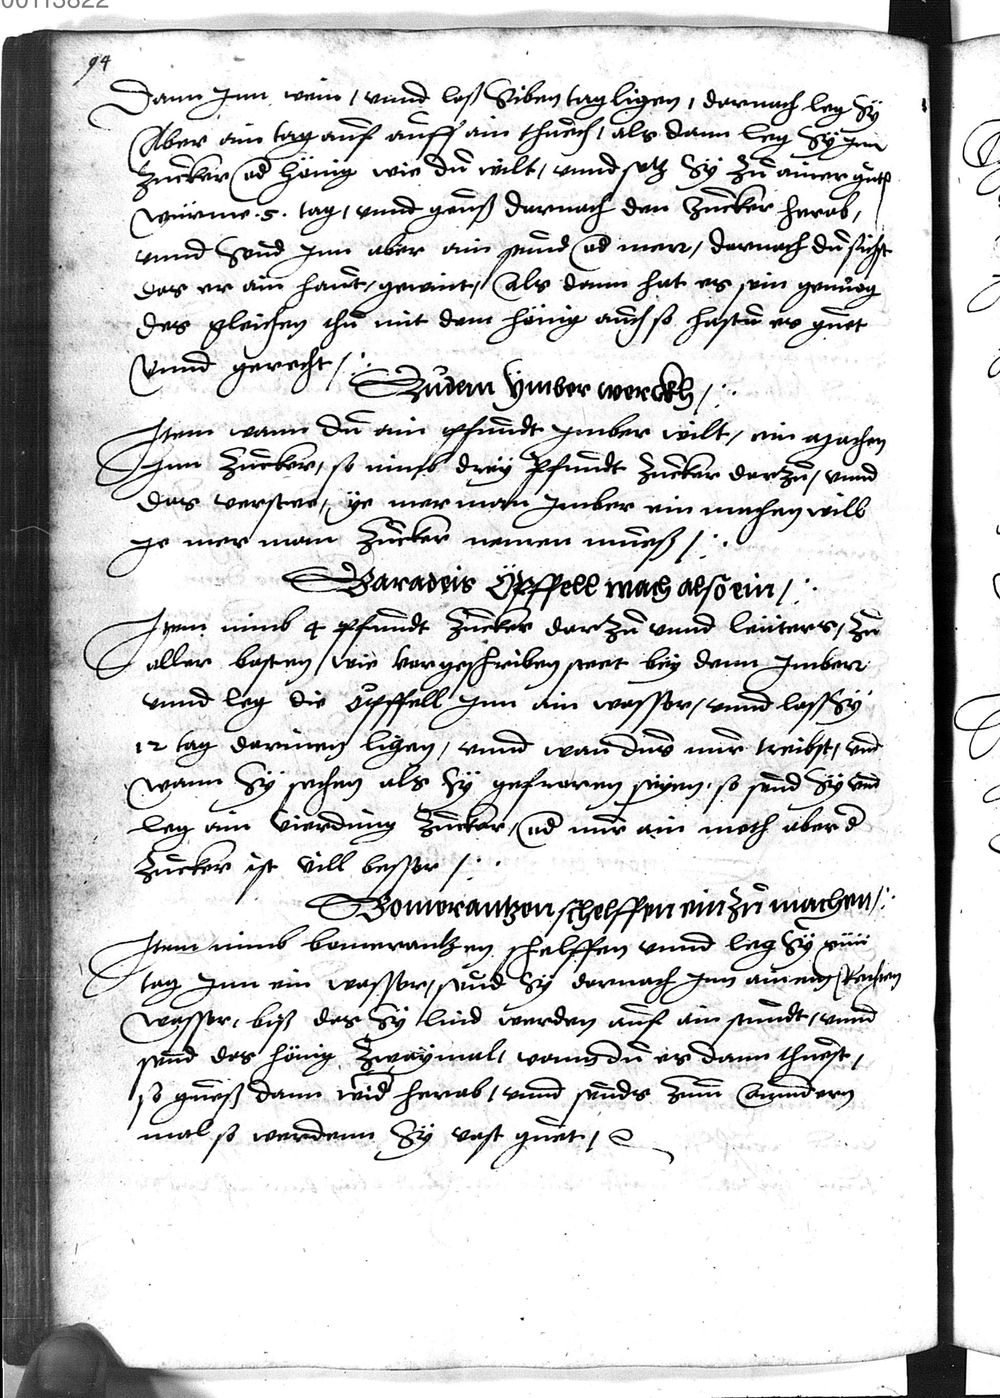 00113822
94
Dann Jnn wein / vnnd laß Siben tag ligen / darnach leg Sÿ
Aber ain tag auf auff ain thuech / als dann leg Sÿ jnn
Zucker od hönig wie du wilt / vnnd setz Sÿ zu ainer guten
würme .5. tag / vnnd geuß darnach den Zucker herab /
vnnd Seud Jnn aber ain seud od merr / darnach du sichst
das er ain haut / gewint / Als dann hat er sein genuog
des gleichen thu mit dem hönig auch so hastu es guet
vnnd gerecht /:
Zu dem ÿmber werckh /:
Item wann du ain pfundt Jmber wilt / ein machen
Jnn Zucker / so nimb dreÿ Pfundt Zucker darzu / vnnd
das verstee / ÿe mer man Jmber ein machen will
ÿe mer man Zucker nemen mueß /:
Baradeis Öpffell mach also ein /:
Item nimb 4 pfundt Zucker dar Zu vnnd leüters / Zu
aller basten / wie vorgeschriben steet beÿ dem Jmber
vnnd leg die Öpffell Jnn ain wasser / vnnd lass Sÿ
12 tag darinen ligen / vnnd wan dus nur treibst / vnd
wann Sÿ sechen als Sÿ gefroren seÿen / so seud Sÿ vnd
leg ain Vierdung Zucker / od nur ain meth aber d
Zucker ist vill besser /:
Bomerantzen schelffen ein zu machen /:
Item nimb bomerantzen schelffen vnnd leg Sÿ viiii
tag Jnn ein wasser / seud Sÿ darnach Jnn ainem Rechten
wasser / biß das Sÿ lind werden auf ain stundt / vnnd
seud das hönig Zwaÿmal / wann du es dann thuest /
so gueß dann wid herab / vnnd seuds zum Anndern
mal so werdenn Sÿ vast guet /